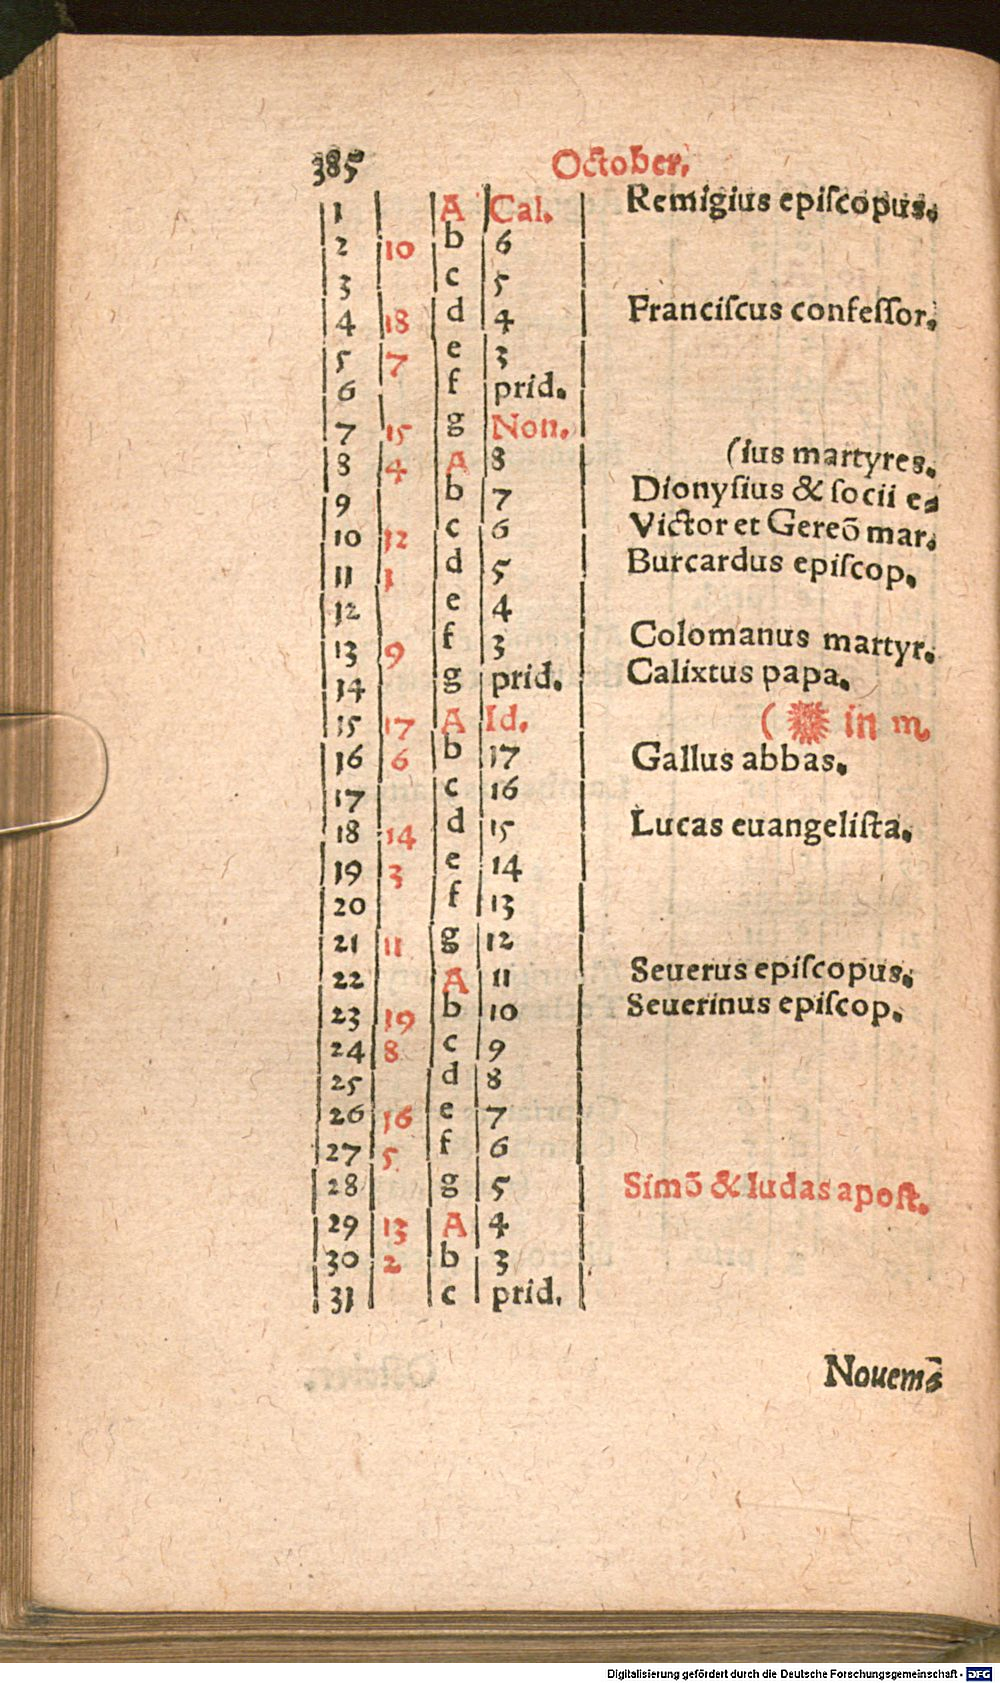 385 October.
1 A Cal. Remigius epiſcopus.
2 10 b 6
3 c 5
4 18 d 4 Franciſcus confeſſor.
5 7 e 3
6 f prid.
7 15 g Non.
8 4 A 8 (ius martyres.
9 b 7 Dionyſius & ſocii e⸗
10 12 c 6 Victor et Gereō mar.
11 1 d 5 Burcardus epiſcop.
12 e 4
13 9 f 3 Colomanus martyr.
14 g prid. Calixtus papa.
15 17 A Id. ( ☀ in ♏
16 6 b 17 Gallus abbas.
17 c 16
18 14 d 15 Lucas euangeliſta.
19 3 e 14
20 f 13
21 11 g 12
22 A 11 Seuerus epiſcopus.
23 19 b 10 Seuerinus epiſcop.
24 8 c 9
25 d 8
26 16 e 7
27 5 f 6
28 g 5 Simō & Iudas apoſt.
29 13 A 4
30 2 b 3
31 c prid.
Nouem⸗
Digitalisierung gefördert durch die Deutsche Forschungsgemeinschaft - DFG